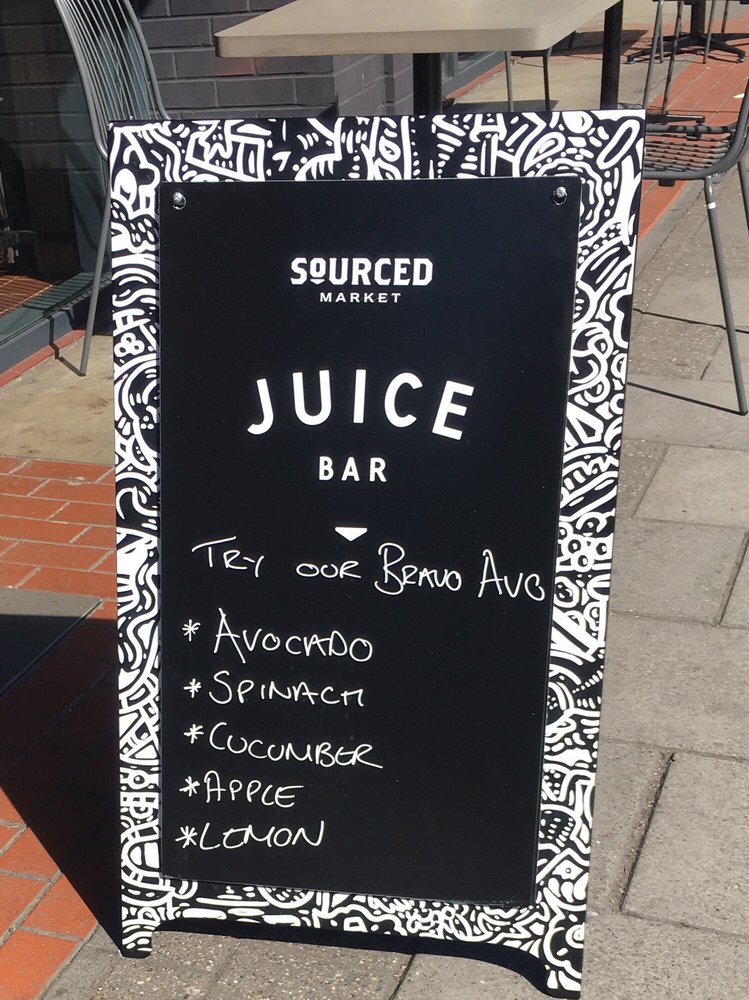 SOURCED
MARKET
JUICE
BAR
TRY OUR BRAVO AVO
* AVOCADO
* SPINACH
* CUCUMBER
* APPLE
* LEMON